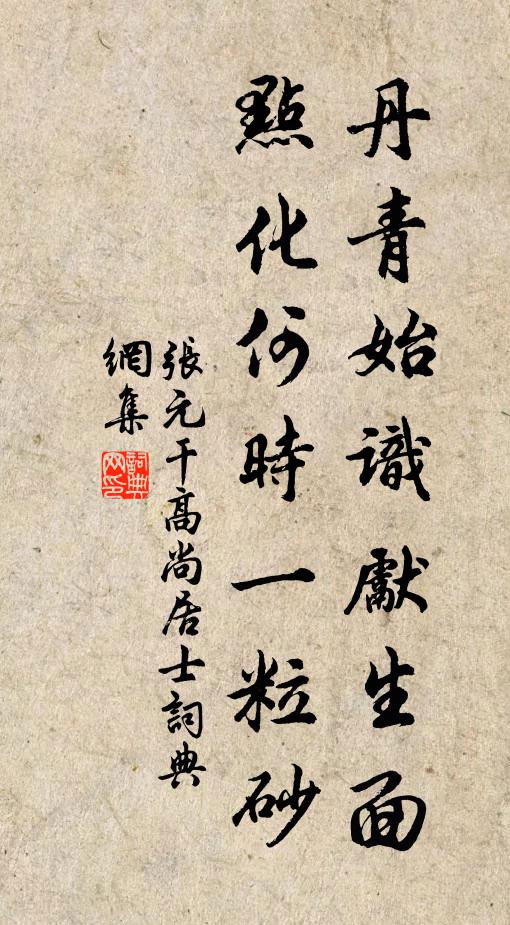 丹青始識獻生面
點化何時一粒砂
張元干高尚居士詞典
網集
詞典
网印